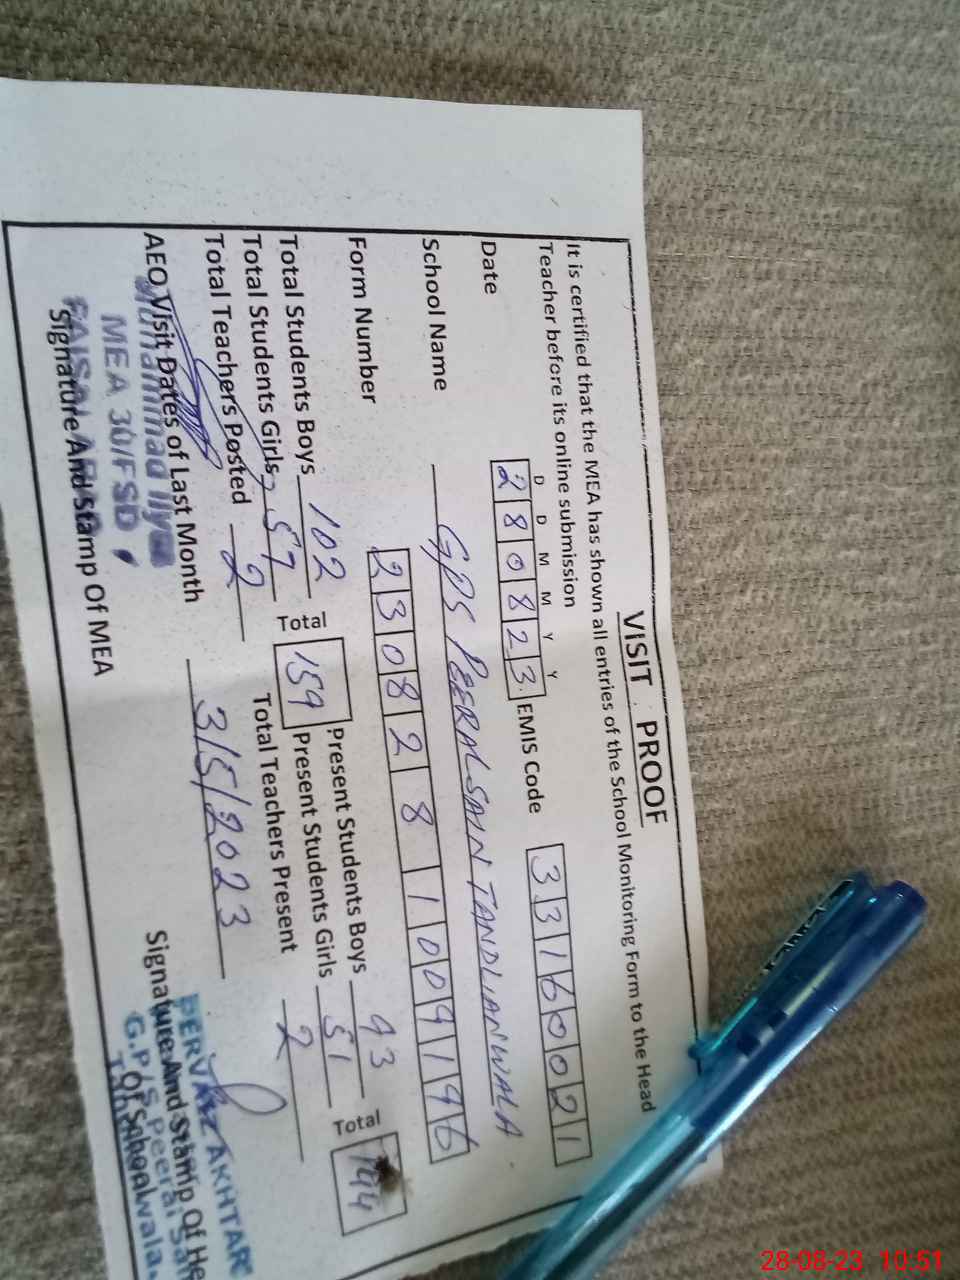 VISIT PROOF
It is certified that the MEA has shown all entries of the School Monitoring Form to the Head
Teacher before its online submission
D D M M Y Y
Date 280823 EMIS Code 33160021
School Name GPS PEERAL SAIN TANDLIANWALA
Form Number 2308281009196
Total Students Boys 102 Total Present Students Boys 93 Total
Total Students Girls 57 159 Present Students Girls 51 144
Total Teachers Posted 2 Total Teachers Present 2
AEO Visit Dates of Last Month 3/5/2023
Muhammad Ilyas
MEA 30/FSD
FAISALABAD
Signature And Stamp Of MEA
PERVAIZ AKHTAR
Signature And Stamp Of He
G.P/S Peeral Sain
Of School
28-08-23 10:51